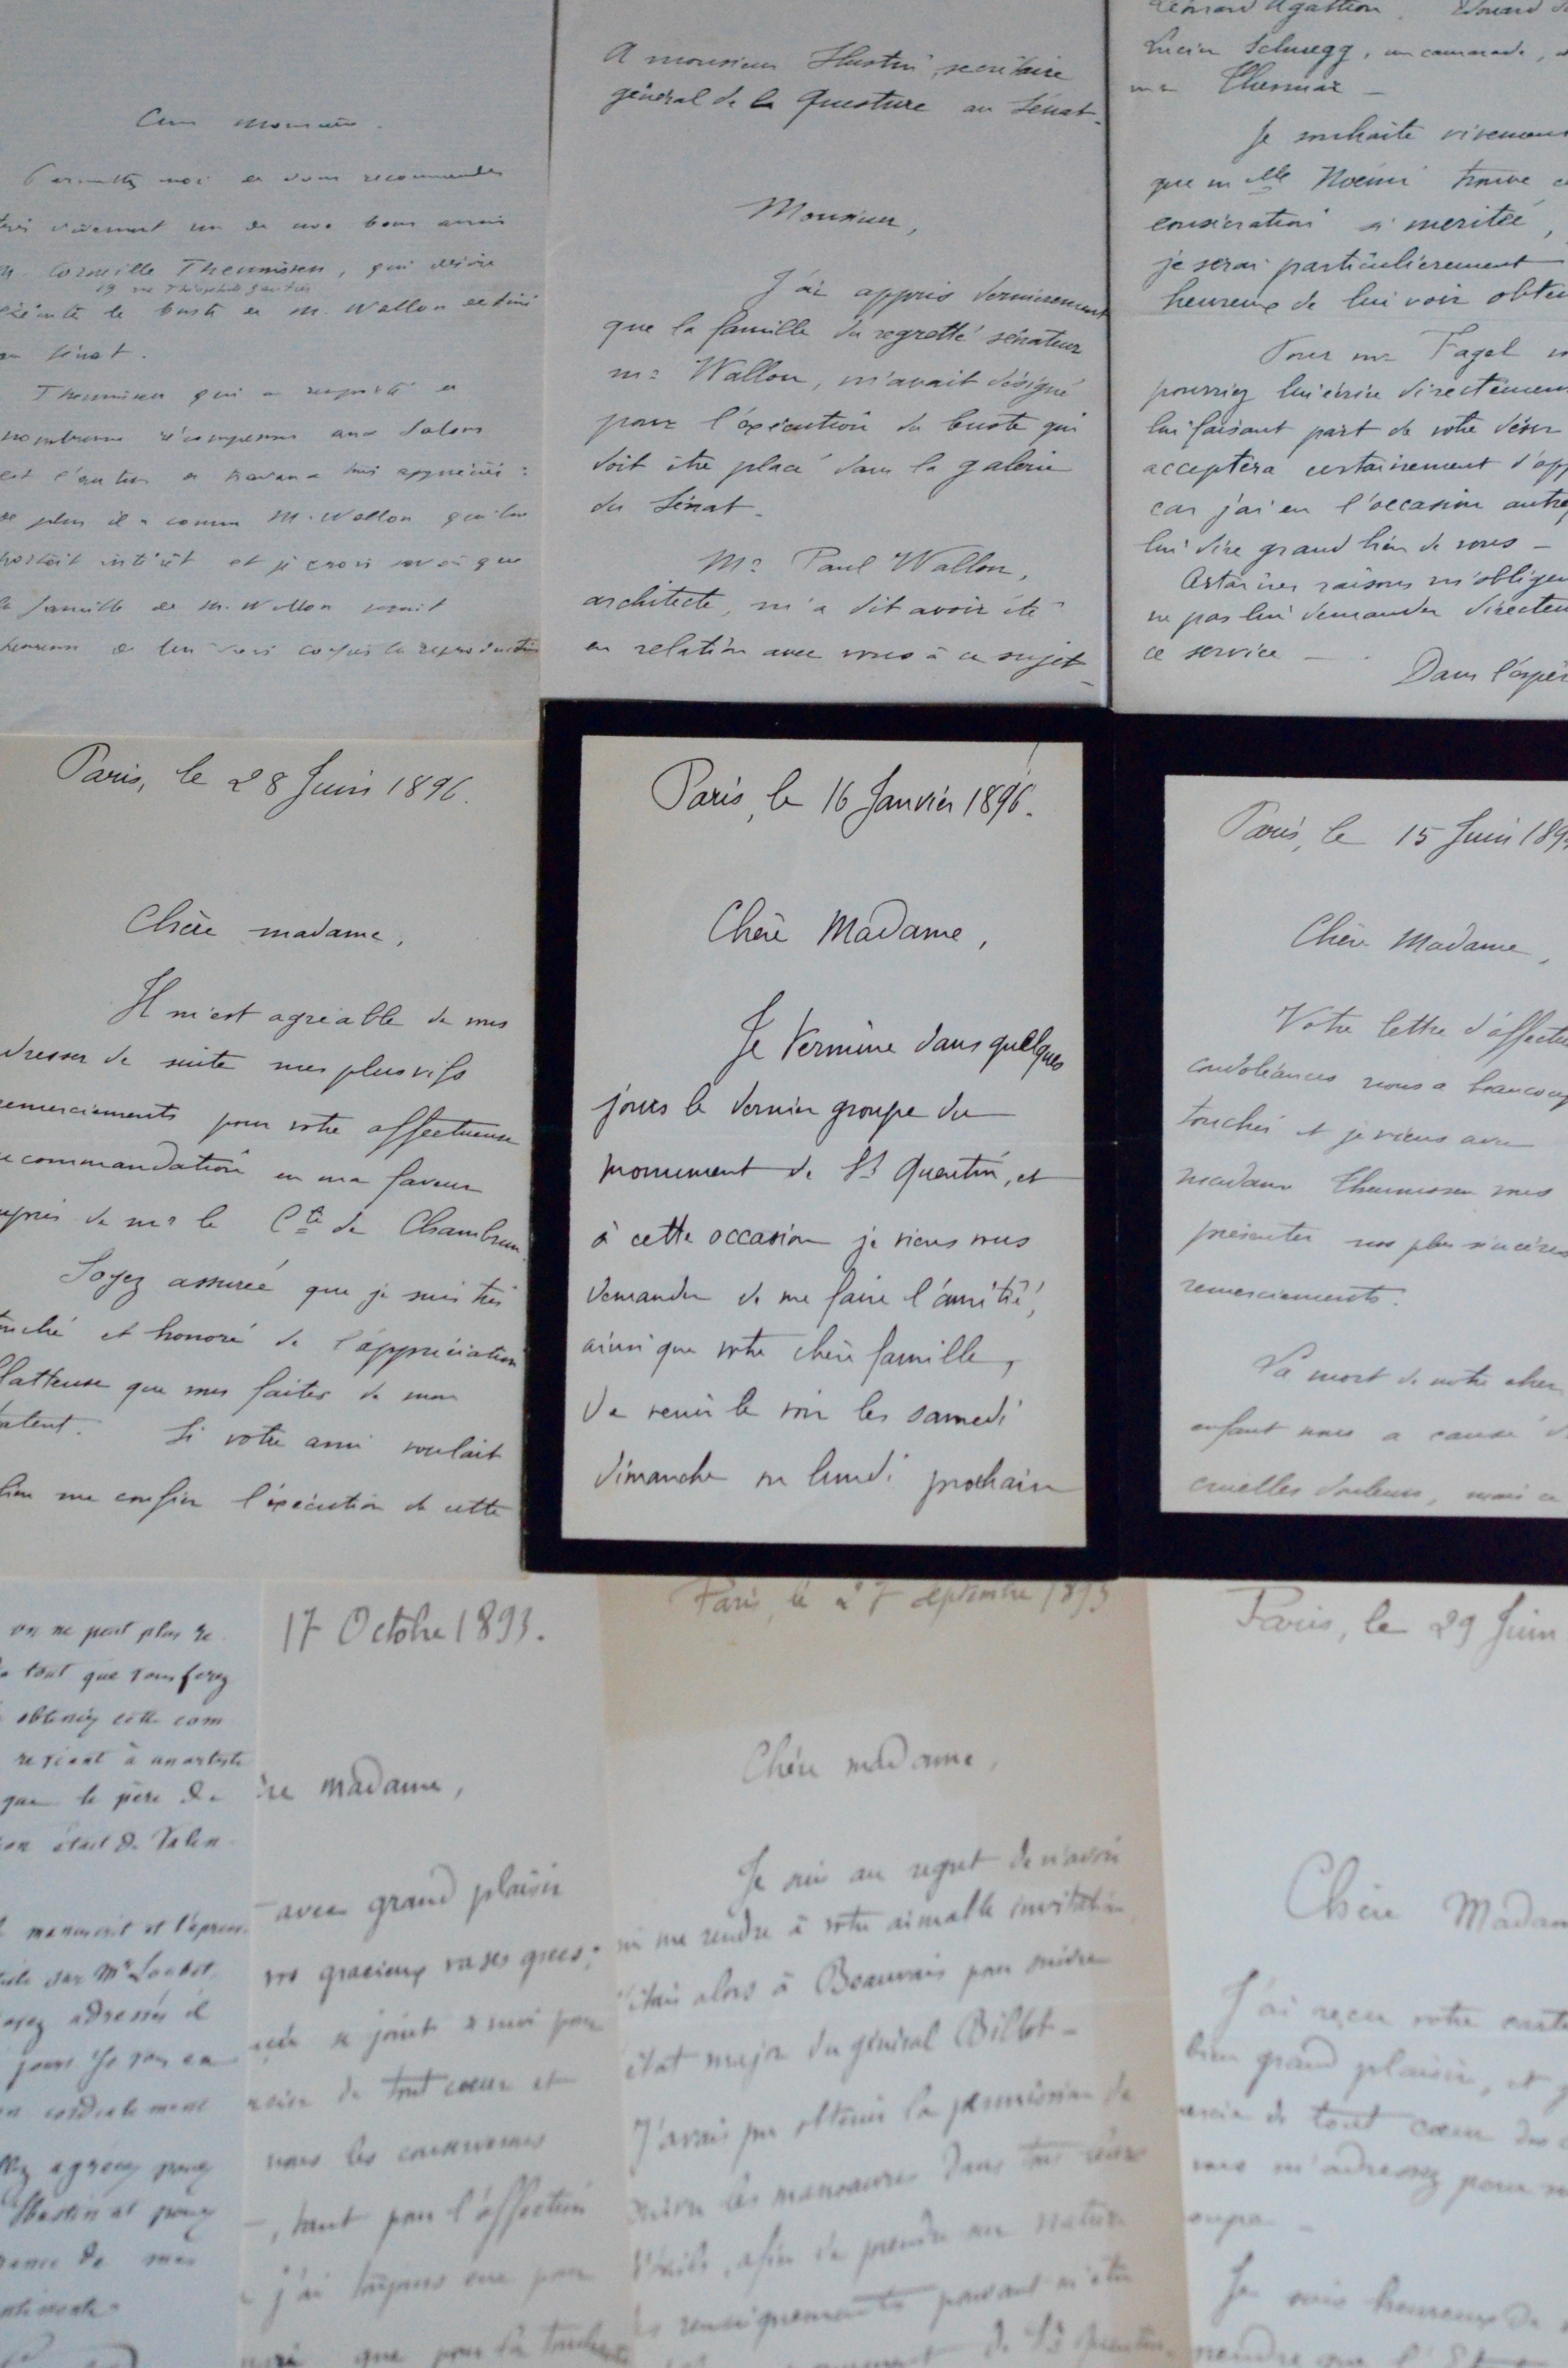 Cher Monsieur.
Permettez moi de vous recommander
très vivement un de nos bons amis
M. Corneille Theunissen, qui désire
19 rue Théophile Gautier
le buste de M. Wallon destiné
au Sénat.
Theunissen qui a remporté de
nombreuses récompenses aux Salons
est l'auteur de travaux très appréciés :
de plus il a connu M. Wallon qui lui
portait intérêt et je crois savoir que
la famille de M. Wallon serait
heureuse de lui voir confier la reproduction
A monsieur Hustin, secrétaire
général de la Questure au Sénat.
Monsieur,
J'ai appris dernièrement
que la famille du regretté sénateur
mr Wallon, m'avait désigné
pour l'exécution du buste qui
doit être placé dans la galerie
du Sénat.
Mr Paul Wallon,
architecte, m'a dit avoir été
en relation avec vous à ce sujet
Léonard Agathon, Edouard
Lucien Schnegg, un camarade,
Je souhaite vivement
que melle Noémi trouve
consécration si meritée,
je serai particulièrement
heureux de lui voir obten
Pour mr Fagel
pourriez lui écrire directement
lui faisant part de votre désir
acceptera certainement d'app
car j'ai eu l'occasion autre
lui dire grand bien de vous –
Certaines raisons m'obligent
ne pas lui demander directem
ce service –
Dans l'espér
Paris, le 28 Juin 1896.
Chère madame,
Il m'est agréable de vous
dresser de suite mes plus vifs
remerciements pour votre affectueuse
recommandation en ma faveur
auprès de mr le Cte de Chambrun.
Soyez assurée que je suis très
touché et honoré de l'appréciation
flatteuse que vous faites de mon
talent. Si votre ami voulait
bien me confier l'exécution de cette
Paris, le 16 Janvier 1896.
Chère Madame,
Je termine dans quelques
jours le dernier groupe du
monument de St Quentin, et
à cette occasion je viens vous
demander de me faire l'amitié,
ainsi que votre chère famille,
de venir le voir les samedi
dimanche ou lundi prochain
Paris, le 15 Juin 189
Chère Madame,
Votre lettre d'affectu
condoléances nous a beaucoup
touchés et je viens avec
madame Theunissen vous
présenter nos plus sincères
remerciements.
La mort de notre cher
enfant nous a causé d
cruelles douleurs, mais
on ne peut plus re
tout que vous ferez
obteniez cette com
revient à un artiste
que le père de
était de Valen
manuscrit et l'épreu
sur Mr
adressés il
jours Je vous en
cordialement
agréer pour
Hustin et pour
de mes
17 Octobre 1893.
re madame,
avec grand plaisir
vos gracieux vases grecs ;
se joint à moi pour
de tout cœur et
nous les conserverons
, tant pour l'affection
j'ai toujours eue pour
que pour la
Paris, le 27 Septembre 1893
Chère madame,
Je suis au regret de n'avoir
pu me rendre à votre aimable invitation,
j'étais alors à Beauvais pour suivre
état major du général Billot –
J'avais pu obtenir la permission de
suivre les manœuvres dans tous leurs
détails, afin de prendre sur nature
les renseignements pouvant m'être
monument de St Quentin
Paris, le 29 Juin
Chère Madam
J'ai reçu votre carte
bien grand plaisir, et
de tout cœur des
vous m'adressez pour m
groupe –
Je suis heureux de